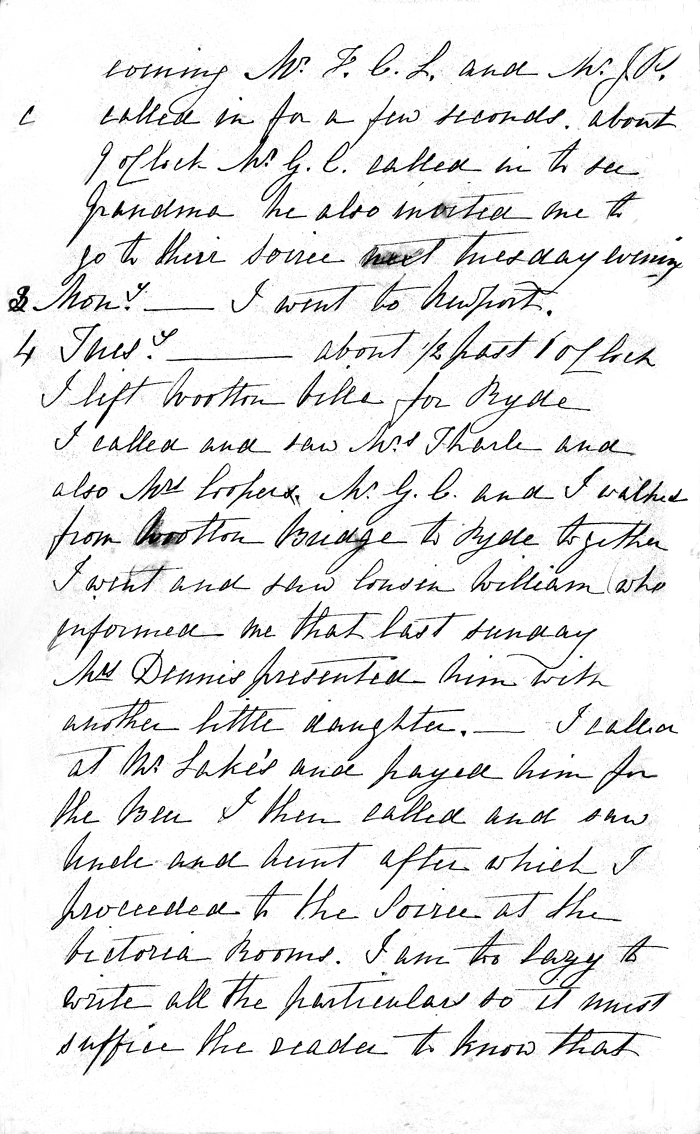 evening Mr. F. C. L. and Mr. J. R.
c called in for a few seconds. about
9 o'Clock Mr G. C. called in to see
grandma he also invited me to
go to their soiree next tuesday evening
3 Mon.y — I went to Newport.
4 Tues.y — about 1/2 past 1 o'Clock
I left Wootton Ville for Ryde
I called and saw Mrs Tharle and
also Mrs Coopers. Mr. G. C. and I walked
from Wootton Bridge to Ryde together
I went and saw Cousin William who
informed me that last sunday
Mrs Dennis presented him with
another little daughter. — I called
at Mr Lake's and payed him for
the Beer I then called and saw
Uncle and Aunt after which I
proceeded to the Soiree at the
Victoria Rooms. I am too lazy to
write all the particulars so it must
suffice the reader to know that